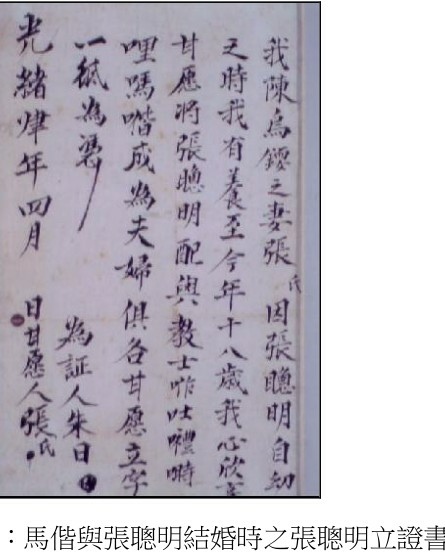 我陳烏之妻張氏因張聰明自幼
之時我有養至今年十八歲我心欣喜
甘愿將張聰明配與教士咋吐
哩嗎喈成為夫婦俱各甘愿立字
一紙為憑
為証人朱日
光緒肆年四月 日甘愿人張氏
：馬偕與張聰明結婚時之張聰明立證書